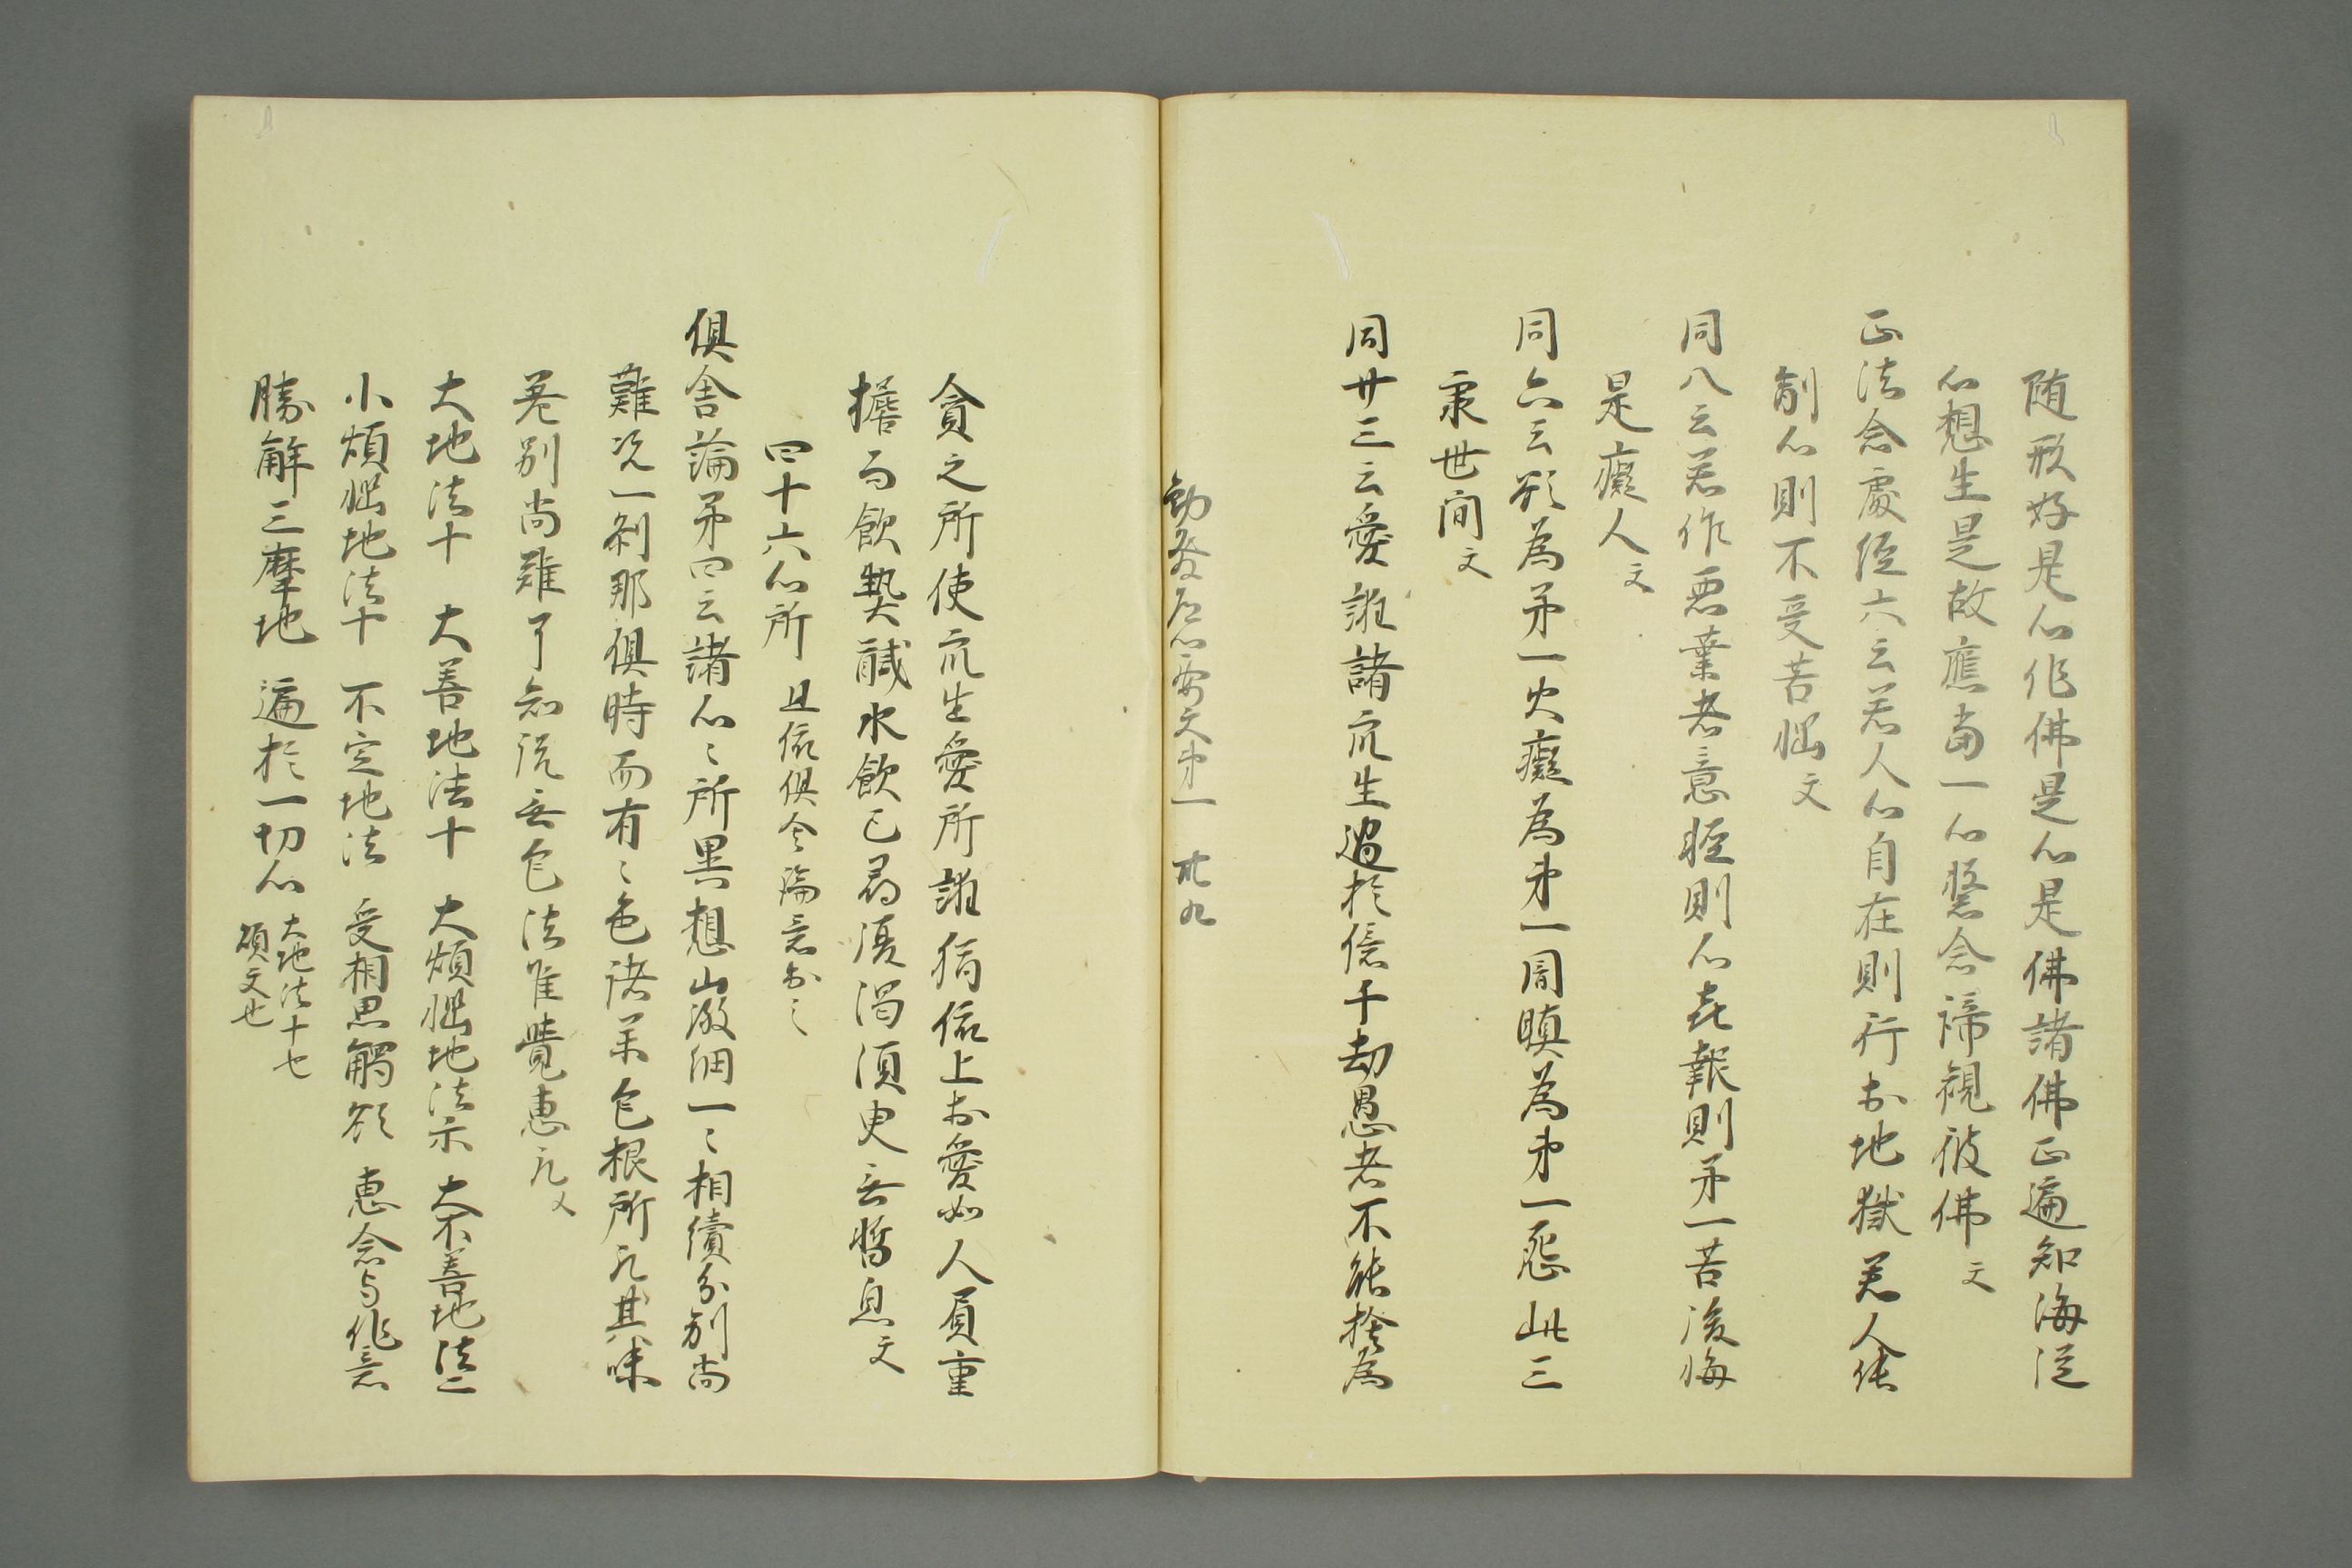 随形好是心作佛是心是佛諸佛正遍知海従
心想生是故應當一心繋念諦観彼佛文
正法念處経六云若人心自在則行於地獄若人能
制心則不受苦悩文
同八云若作悪業者意軽則心喜報則第一苦後悔
是癡人文
同六云欲為第一火癡為第一闇瞋為第一怨此三
秉世間文
同廿三云愛誑諸衆生過於億千劫愚者不能捨為
勧發大心要文第一 廿九
貪之所使衆生愛所誑猗依上於愛如人負重
擔而飲熱醎水飲已尋復渇須臾無暫息文
四十六心所 且依倶舎論意出之
倶舎論第四云諸心〻所異想微細一〻相續分別尚
難况一刹那倶時而有〻色諸業色根所取其味
差別尚難了知况無色法唯覺恵取文
大地法十 大善地法十 大煩悩地法六 大不善地法二
小煩悩地法十 不定地法 受相思觸欲 恵念与作意
勝解三摩地 遍於一切心 大地法十七
頌文也